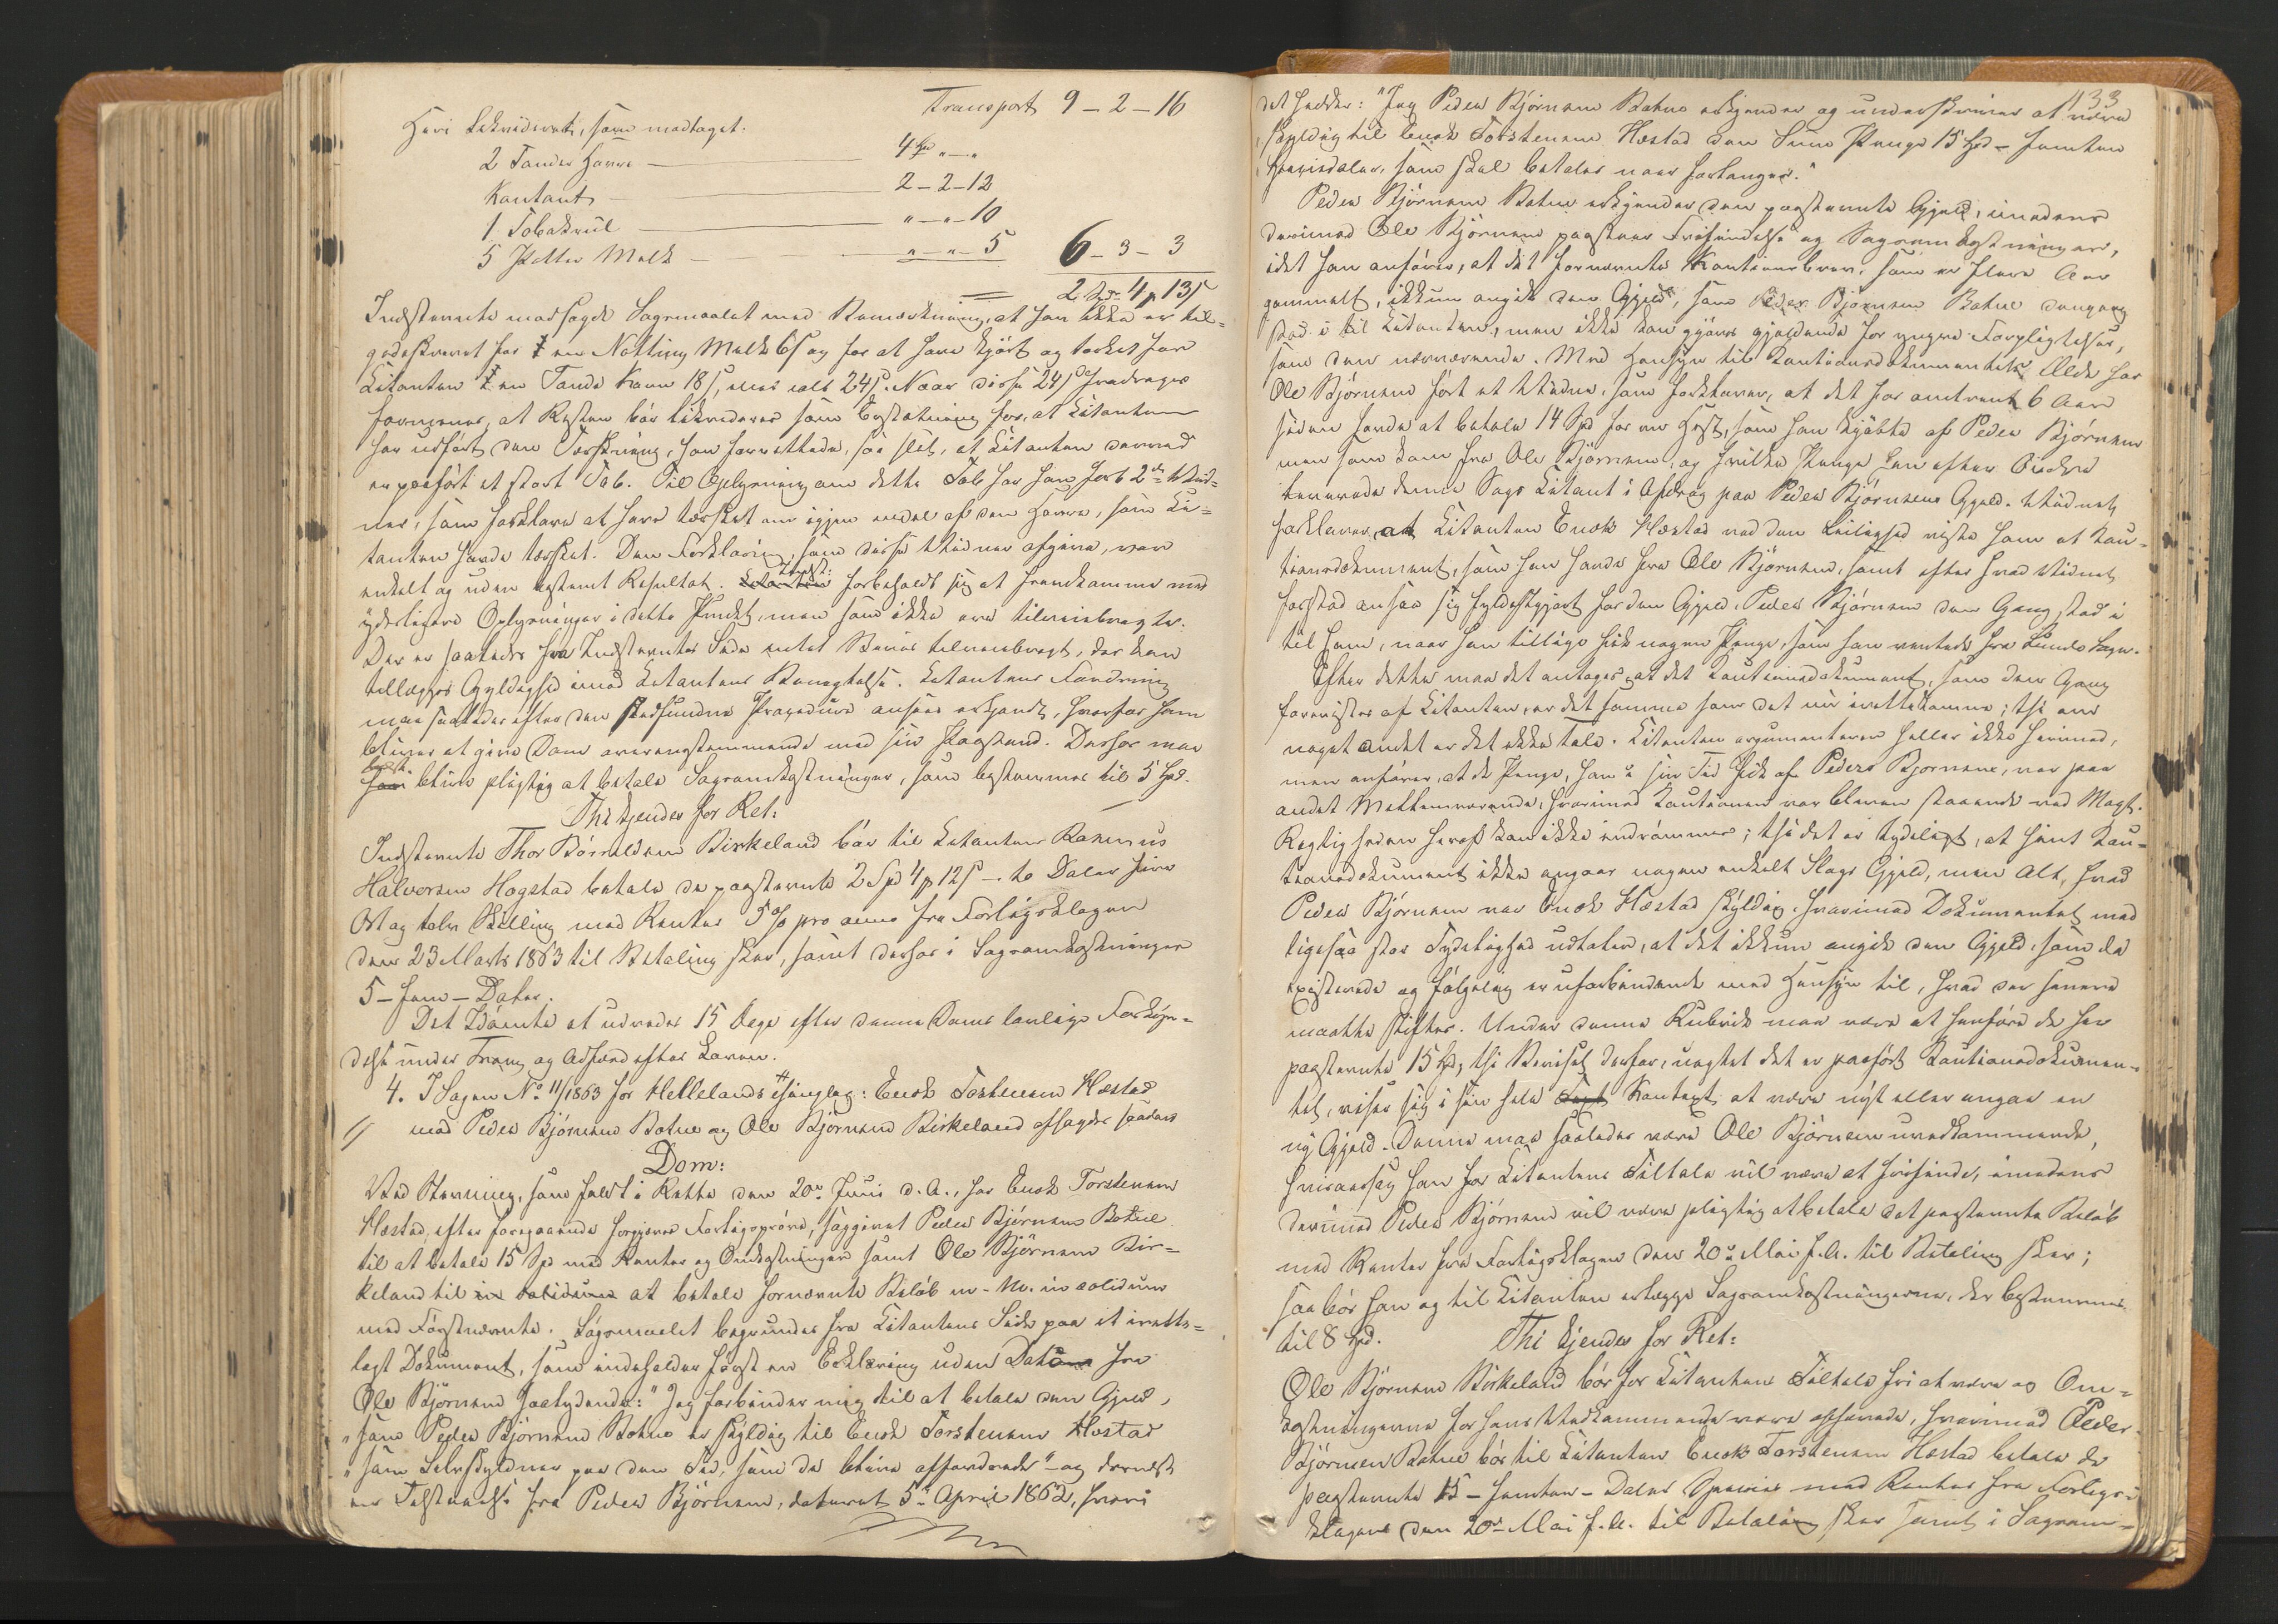 Transport 9 - 2 - 16
Heri Likvideret, som modtaget:
2 Tønder Havre 4 Spd " - "
Kontant 2 - 2 - 12
1 Tobakrul " - " - 10
5 Potter Melk " - " - 5 6 - 3 - 3
2 Spd 4 # 13 s
Indstevnte modsagde Sagsmaalet med Bemærkning, at han ikke er til-
godeskrevet for en Notting Melk 6 s og for at have kjørt og tærsket for
Citanten en Tønde Korn 18 s, med ialt 24 s. Naar disse 24 s fradrages
formener, at Resten bør likvideres som Erstatning for, at Citanten
har udført den Tærskning, han forrettede, saa slet, at Citanten derved
er paaført et stort Tab. Til Oplysning om dette Tab har han ført 2de Vid-
ner, som forklare at have tærsket om igjen endel af den Havre, som Ci-
tanten havde tærsket. Den Forklaring, som disse Vidner afgive, var
enkelt og uden bestemt Resultat. Indst: forbeholdt sig at fremkomme med
yderligere Oplysninger i dette Punkt, men som ikke ere tilveiebragte.
Der er saaledes fra Indstevntes Side intet Beviis tilveiebragt, der kan
tillægges Gyldighed imod Citantens Benægtelse. Citantens Fordring
maa saaledes efter den stedfundne Procedure ansees erkjendt, hvorfor han
bliver at give Dom overensstemmende med sin Paastand. Derfor maa
Indst: blive pligtig at betale Sagsomkostninger, som bestemmes til 5 Spd.
Thi kjendes for Ret:
Indstevnte Thor Børildsen Birkeland bør til Citanten Rasmus
Halvorsen Hogstad betale de paastevnte 2 Spd 4 # 12 s - to Daler fire
Ort og tolv Skilling med Renter 5 % pro anno fra Forligsklagen
den 23 Marts 1863 til Betaling skeer, samt derfor i Sagsomkostninger
5 - fem - Daler.
Det Idømte at udredes 15 Dage efter denne Doms lovlige Forkyn-
delse under Tvang og Adfærd efter Loven.
4. I Sagen No 11/1863 for Hellelands Thinglag: Enok Torstensen Hæstad
mod Peder Bjørnsen Botne og Ole Bjørnsen Birkeland afsagdes saadan
Dom:
Ved Stevning, som faldt i Rette den 20de Juni d. A., har Enok Torstensen
Hæstad, efter foregaaende forgjæves Forligsprøve, saggivet Peder Bjørnsen Botne
til at betale 15 Spd med Renter og Omkostninger samt Ole Bjørnsen Bir-
keland til in solidum at betale fornævnte Beløb in solidum
med Førstnævnte. Sagsmaalet begrundes fra Citantens Side paa et irette-
lagt Dokument, som indeholder først en Erklæring uden Datum fra
Ole Bjørnsen saalydende: "Jeg forbinder mig til at betale den Gjæld,
"som Peder Bjørnsen Botne er skyldig til Enok Torstensen Hæstad
"som Selvskyldner paa den Tid, som de blive affordrede" - og dernæst
en Tilstaaelse fra Peder Bjørnsen, dateret 5te April 1862, hvori
133
det hedder: "Jeg Peder Bjørnsen Botne erkjender og underskriver at være
skyldig til Enok Torstensen Hæstad den Sum Penge 15 Spd - femten
Speciedaler, som skal betales naar forlanges."
Peder Bjørnsen Botne erkjender den paastevnte Gjæld, imedens
derimod Ole Bjørnsen paastaar Frifindelse og Sagsomkostninger,
idet han anfører, at det fornævnte Kautionsbrev, som er flere Aar
gammelt, ikkun angik den Gjæld, som Peder Bjørnsen Botne dengang
stod i til Citanten, men ikke kan gjøres gjældende for yngre Forpligtelser,
som den nærværende. Med Hensyn til Kautionsdokumentets Ælde har
Ole Bjørnsen ført et Vidne, som forklarer, at det for omtrent 6 Aar
siden havde at betale 14 Spd for en Hest, som han kjøbte af Peder Bjørnsen
men som kom fra Ole Bjørnsen, og hvilke Penge han efter Ordre
leverede denne Sags Citant i Afdrag paa Peder Bjørnsens Gjæld. Vidnet
forklarer, at Citanten Enok Hæstad ved den Leilighed viste ham et Kau-
tionsdokument, som han havde fra Ole Bjørnsen, samt efter hvad Vidnet
forstod ansaa sig fyldestgjort for den Gjæld, Peder Bjørnsen den Gang stod i
til ham, naar han tillige fik nogen Penge, som han ventede fra Lunds Sogn.
Efter dette maa det antages, at det Kautionsdokument, som den Gang
forevistes af Citanten, er det samme som det nu irettekomne; thi om
noget andet er det ikke Tale. Citanten argumenterer heller ikke herimod,
men anfører, at de Penge, han i sin Tid fik af Peders Bjørnsen, var paa
andet Mellemværende, hvorimod Kautionen var bleven staaende ved Magt.
Rigtigheden heraf kan ikke indrømmes; thi det er tydeligt, at hint Kau-
tionsdokument ikke angaar nogen enkelt Slags Gjæld, men Alt, hvad
Peder Bjørnsen var Enok Hæstad skyldig. Hvorimod Dokumentet med
ligesaa stor Tydelighed udtaler, at det ikkun angik den Gjæld, som da
existerede og følgelig er uforbindende med Hensyn til, hvad der senere
maatte stiftes. Under denne Rubrik maa være at henføre de her
paastevnte 15 Spd, thi Beviset derfor, uagtet det er paaført Kautionsdokumen-
tet, viser sig i sin hele Kontext at være nyt eller angaa en
ny Gjæld. Denne maa saaledes være Ole Bjørnsen uvedkommende,
hvisaarsag han for Citantens Tiltale vil være at frifinde, imedens
derimod Peder Bjørnsen vil være pligtig at betale det paastevnte Beløb
med Renter fra Forligsklagen den 20de Mai d. A. til Betaling skeer;
saa bør han og til Citanten erlægge Sagsomkostningerne, der bestemmes
til 8 Spd.
Thi kjendes for Ret:
Ole Bjørnsen Birkeland bør for Citantens Tiltale fri at være og Om-
kostningerne for hans Vedkommende være ophævede, hvorimod Peder
Bjørnsen Botne bør til Citanten Enok Torstensen Hæstad betale de
paastevnte 15 - femten - Daler Species med Renter fra Forligs-
klagens den 20de Mai d. A. til Betaling skeer samt i Sagsom-